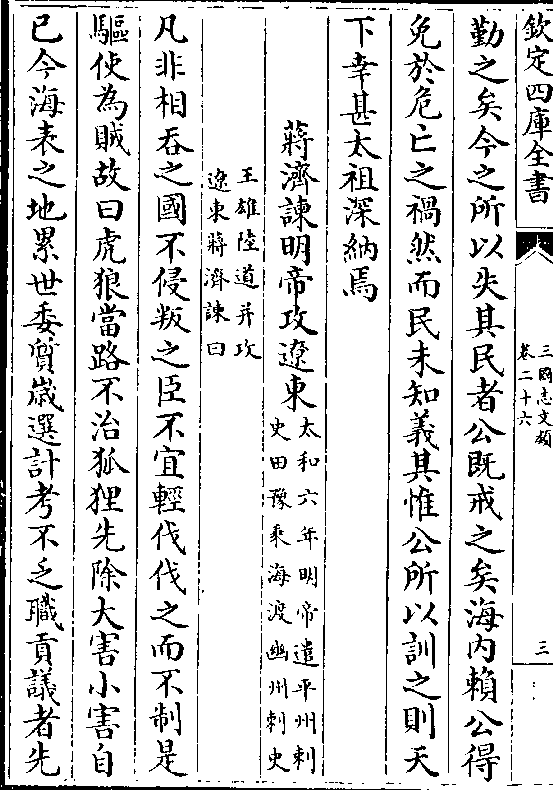 欽定四庫全書
三國志文類
卷二十六
三
勤之矣今之所以失其民者公既戒之矣海内賴公得
免於危亡之禍然而民未知義其惟公所以訓之則天
下幸甚太祖深納焉
蔣濟諫明帝攻遼東
太和六年明帝遣平州刺
史田豫乘海渡幽州刺史
王雄陸道并攻
遼東蔣濟諫曰
凡非相吞之國不侵叛之臣不宜輕伐伐之而不制是
驅使為賊故曰虎狼當路不治狐狸先除大害小害自
已今海表之地累世委質歳選計考不乏職貢議者先